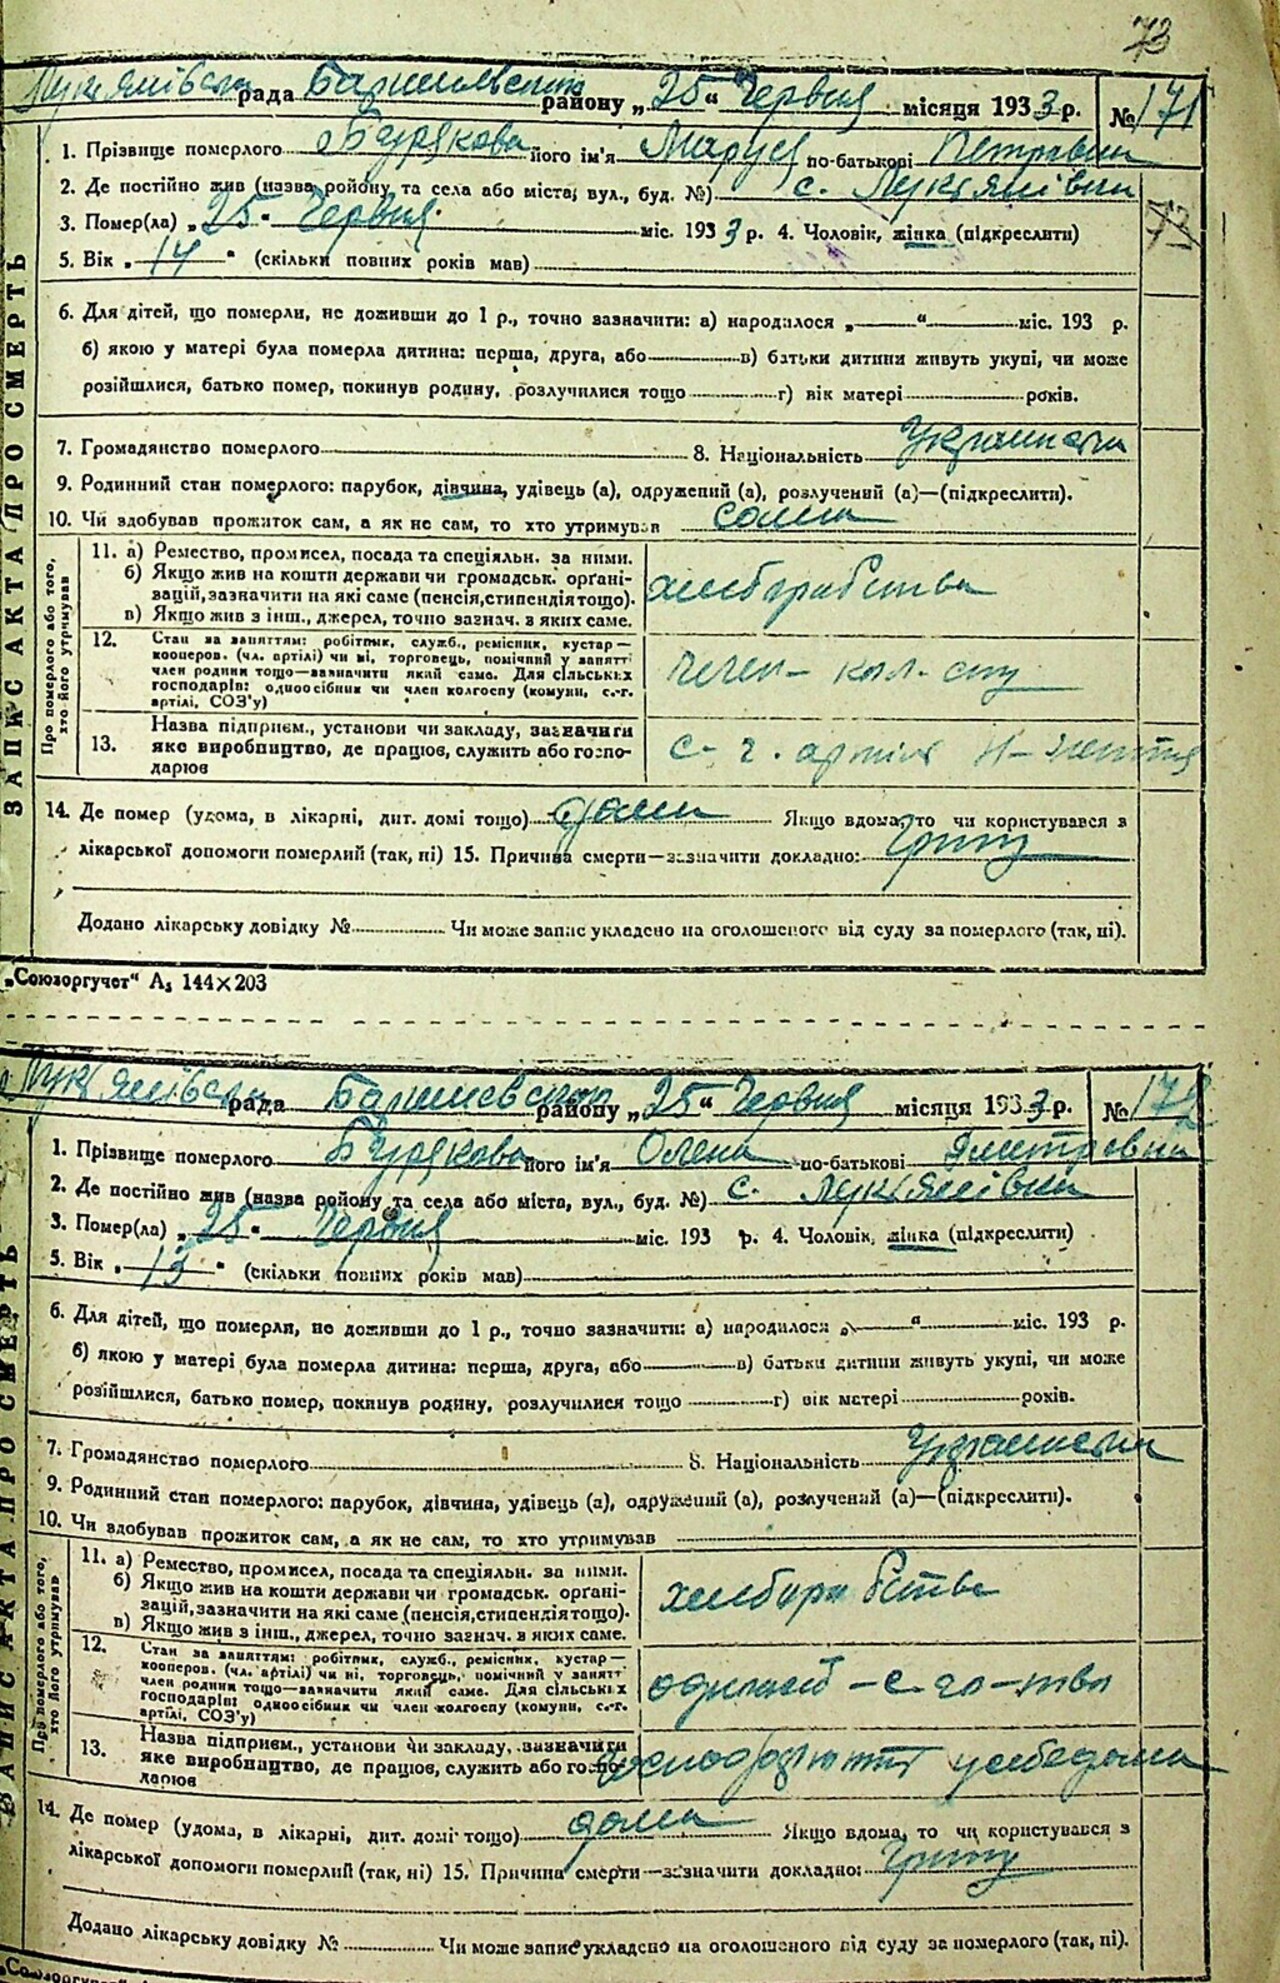 73
Лукʼянівська рада Баришевського району „25“ Червня місяця 1933 р. № 171
1. Прізвище померлого Бурякова його ім'я Маруся по-батькові Петрівна
2. Де постійно жив (назва району, та села або міста, вул., буд. №) с. Лукʼянівки
3. Помер(ла) „25“ Червня міс. 1933 р. 4. Чоловік, жінка (підкреслити)
73
5. Вік „14“ (скільки повних років мав)
6. Для дітей, що померли, не доживши до 1 р., точно зазначити: а) народилося „ “ міс. 193 р.
б) якою у матері була померла дитина: перша, друга, або в) батьки дитини живуть укупі, чи може
розійшлися, батько помер, покинув родину, розлучилися тощо г) вік матері років.
7. Громадянство померлого 8. Національність Українка
9. Родинний стан померлого: парубок, дівчина, удівець (а), одружений (а), розлучений (а)—(підкреслити).
10. Чи здобував прожиток сам, а як не сам, то хто утримував сама
ЗАПИС АКТА ПРО СМЕРТЬ
Про померлого або того,
хто його утримував
11. а) Ремество, промисел, посада та спеціяльн. за ними.
б) Якщо жив на кошти держави чи громадськ. органі-
зацій, зазначити на які саме (пенсія, стипендія тощо).
в) Якщо жив з інш., джерел, точно зазнач. в яких саме.
хліборобство
12. Стан за заняттям: робітник, служб., ремісник, кустар—
кооперов. (чл. артілі) чи ні, торговець, помічний у занятт
член родини тощо—зазначити який саме. Для сільських
господарів: одноосібник чи член колгоспу (комуни, с.-г.
артілі, СОЗ'у)
член- кол-спу
13. Назва підприєм., установи чи закладу, зазначити
яке виробництво, де працює, служить або госпо-
дарює
с- г. артіль
14. Де помер (удома, в лікарні, дит. домі тощо) дома Якщо вдома, то чи користувався з
лікарської допомоги померлий (так, ні) 15. Причина смерти—зазначити докладно: Грипу
Додано лікарську довідку № Чи може запис укладено на оголошеного від суду за померлого (так, ні).
„Союзоргучет“ А₅ 144×203
Лукʼянівська рада Баришевського району „25“ Червня місяця 1933 р. № 172
1. Прізвище померлого Бурякова його ім'я Олена по-батькові Дмитрівна
2. Де постійно жив (назва району та села або міста, вул., буд. №) с. Лукʼянівки
3. Помер(ла) „25“ Червня міс. 193 р. 4. Чоловік, жінка (підкреслити)
5. Вік „13“ (скільки повних років мав)
6. Для дітей, що померли, не доживши до 1 р., точно зазначити: а) народилося „ “ міс. 193 р.
б) якою у матері була померла дитина: перша, друга, або в) батьки дитини живуть укупі, чи може
розійшлися, батько помер, покинув родину, розлучилися тощо г) вік матері років.
7. Громадянство померлого 8. Національність Українка
9. Родинний стан померлого: парубок, дівчина, удівець (а), одружений (а), розлучений (а)—(підкреслити).
10. Чи здобував прожиток сам, а як не сам, то хто утримував
ЗАПИС АКТА ПРО СМЕРТЬ
Про померлого або того,
хто його утримував
11. а) Ремество, промисел, посада та спеціяльн. за ними.
б) Якщо жив на кошти держави чи громадськ. органі-
зацій, зазначити на які саме (пенсія, стипендія тощо).
в) Якщо жив з інш., джерел, точно зазнач. в яких саме.
хліборобство
12. Стан за заняттям: робітник, служб., ремісник, кустар—
кооперов. (чл. артілі) чи ні, торговець, помічний у занятт
член родини тощо—зазначити який саме. Для сільських
господарів: одноосібник чи член колгоспу (комуни, с.-г.
артілі, СОЗ'у)
13. Назва підприєм., установи чи закладу, зазначити
яке виробництво, де працює, служить або госпо-
дарює
14. Де помер (удома, в лікарні, дит. домі тощо) дома Якщо вдома, то чи користувався з
лікарської допомоги померлий (так, ні) 15. Причина смерти—зазначити докладно: Грипу
Додано лікарську довідку № Чи може запис укладено на оголошеного від суду за померлого (так, ні).